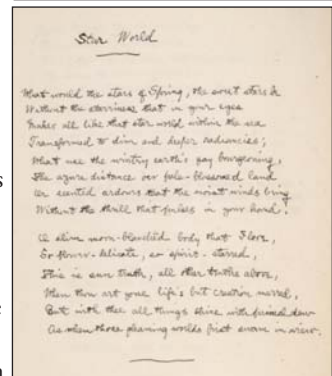 Star World
What would the stars of Spring, the sweet stars be
Without the starriness that in your eyes
Makes all like that star world within the sea
Transformed to dim and deeper radiancies;
What use the wintry earth's gay burgeoning,
The azure distance o'er pale-blossomed land
Or scented ardours that the moist winds bring
Without the thrill that pulses in your hand.
O slim moon-blanched body that I love,
So flower-delicate, so spirit-starred,
This is our truth, all other truths above,
When thou art gone life's but creation marred,
But with thee all things shine with dew
As when those gleaming worlds first swam in view.
s